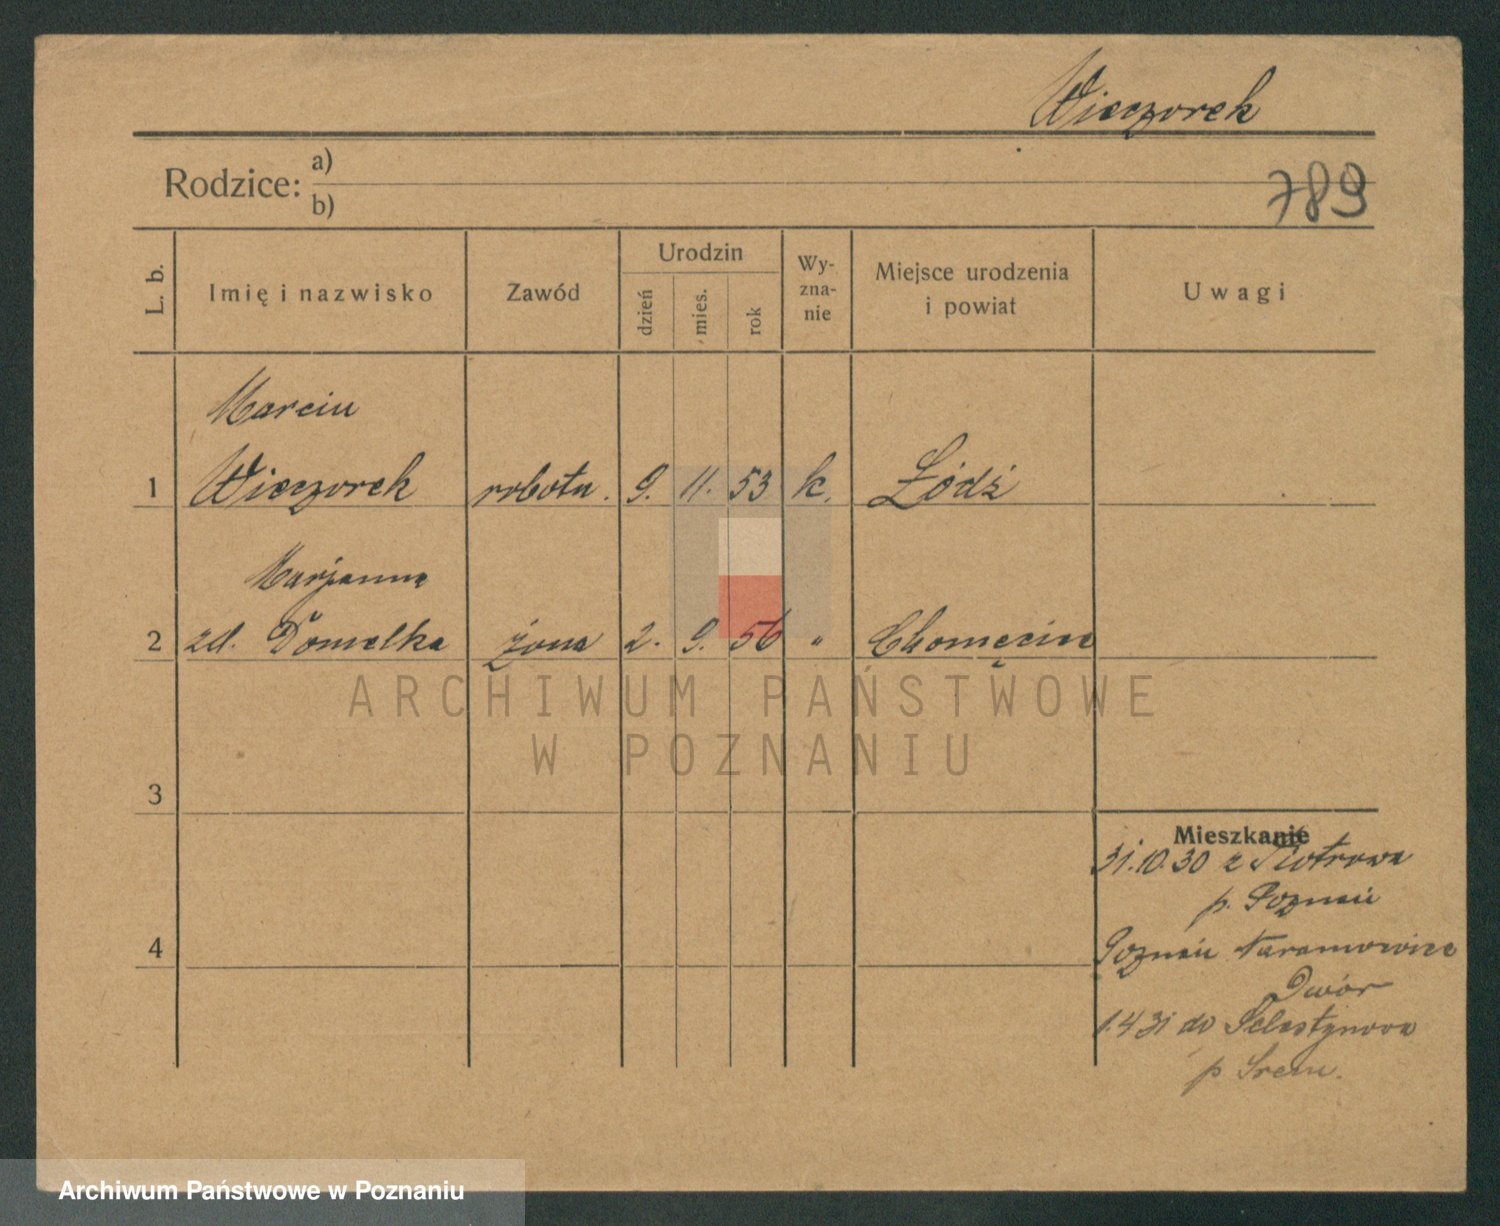 Wieczorek
Rodzice: a)
b)
789
L. b.
Imię i nazwisko
Zawód
Urodzin
dzień
mies.
rok
Wy-
zna-
nie
Miejsce urodzenia
i powiat
Uwagi
Marcin
1 Wieczorek robotn. 9. 11. 53 k. Łódź
Marjanna
2 zd. Domelka żona 2. 9. 56 " Chomęcice
3
4
Mieszkanie
31.10.30 z Piotrowa
p. Poznań
Poznań Naramowice
Dwór
1.4 31 do Celestynowa
p Śrem.
ARCHIWUM PAŃSTWOWE
W POZNANIU
Archiwum Państwowe w Poznaniu